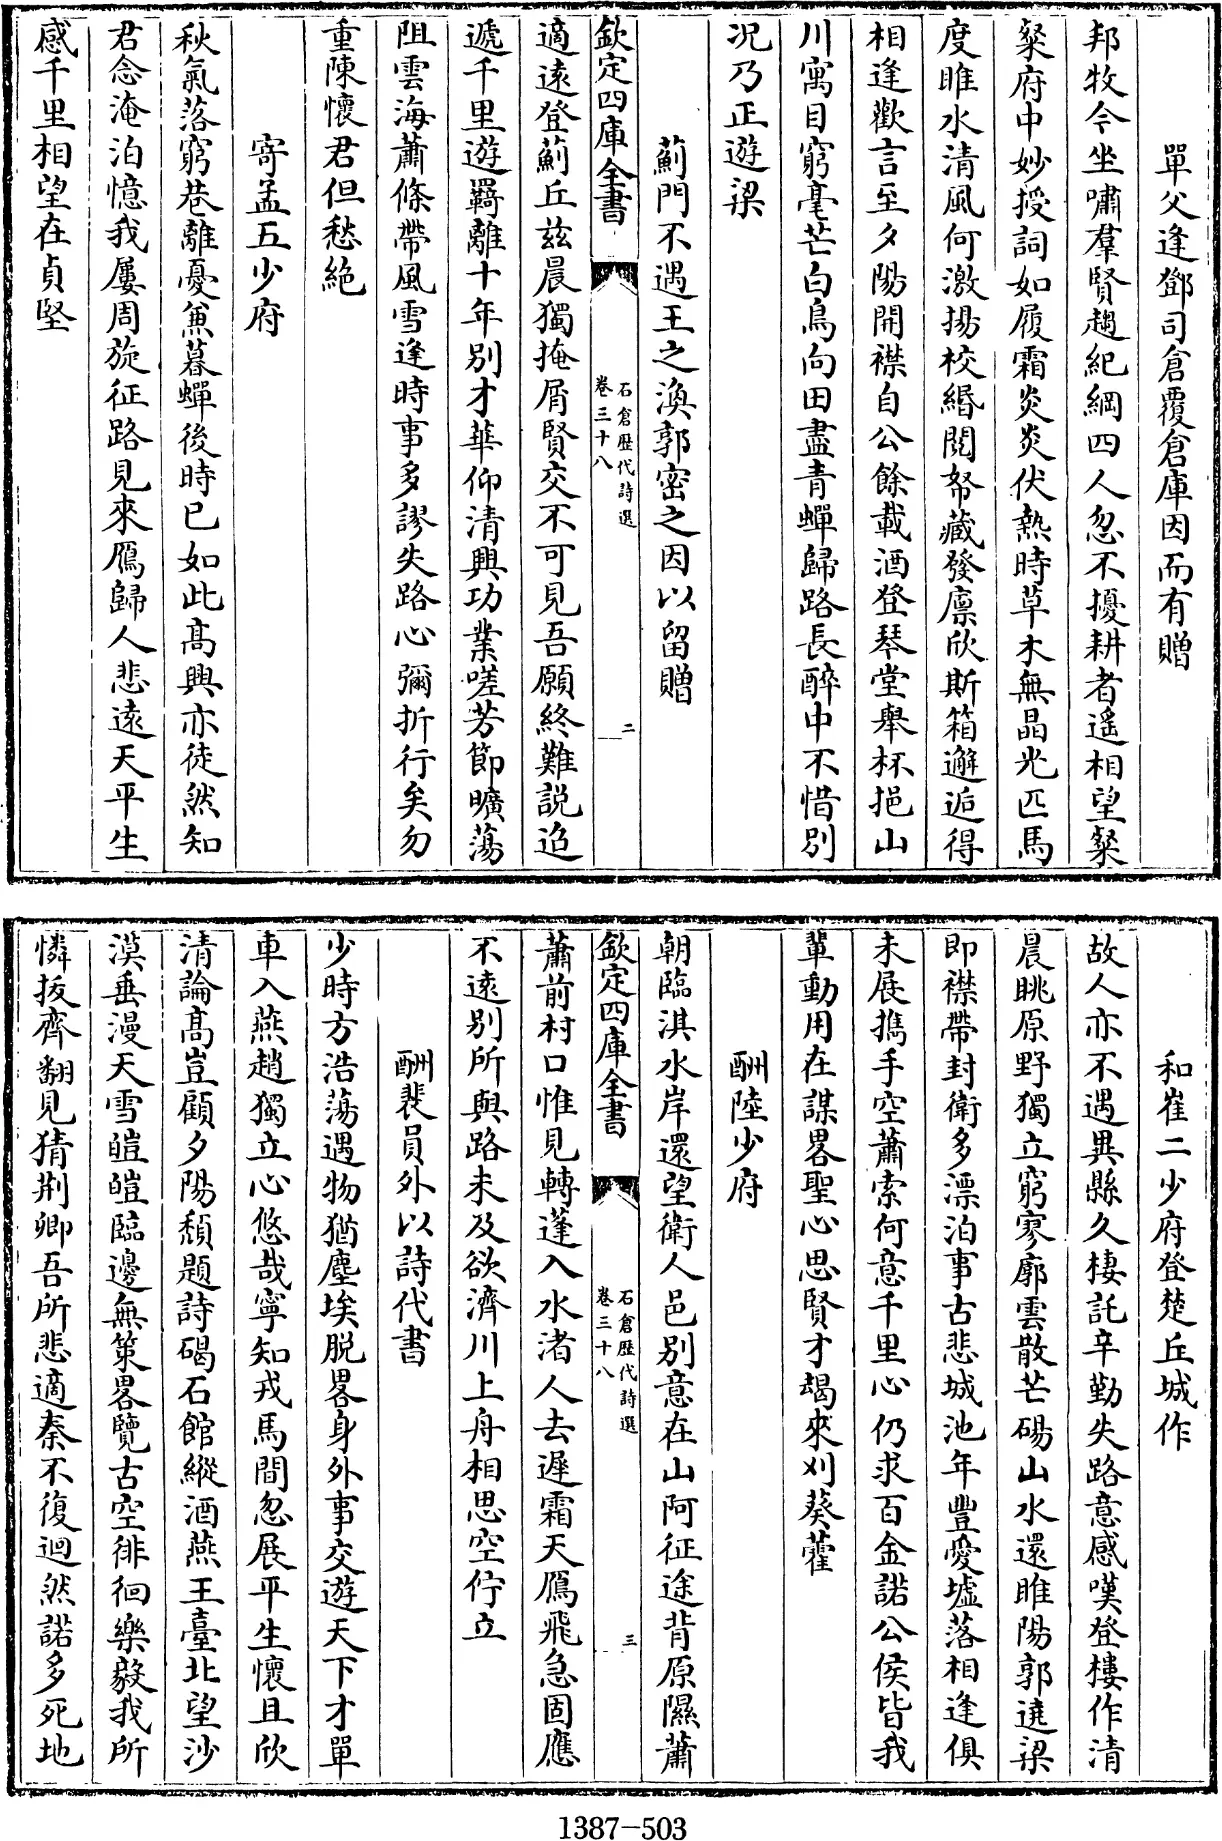 單父逢鄧司倉覆倉庫因而有贈
邦牧今坐嘯羣賢趨紀綱四人忽不擾耕者遥相望粲
粲府中妙授詞如履霜炎炎伏熱時草木無晶光匹馬
度睢水清風何激揚校緡閲帑藏發廪欣斯箱邂逅得
相逢歡言至夕陽開襟自公餘載酒登琴堂舉杯挹山
川寓目窮毫芒白鳥向田盡青蟬歸路長醉中不惜别
况乃正遊梁
薊門不遇王之渙郭密之因以留贈
欽定四庫全書
石倉歴代詩選
卷三十八
二
適遠登薊丘兹晨獨掩屑賢交不可見吾願終難説迢
遞千里遊羇離十年别才華仰清興功業嗟芳節曠蕩
阻雲海蕭條帶風雪逢時事多謬失路心彌折行矣勿
重陳懷君但愁絶
寄孟五少府
秋氣落窮巷離憂兼暮蟬後時已如此髙興亦徒然知
君念淹泊憶我屢周旋征路見來鴈歸人悲遠天平生
感千里相望在貞堅
和崔二少府登楚丘城作
故人亦不遇異縣久棲託辛勤失路意感嘆登樓作清
晨眺原野獨立窮寥廓雲散芒碭山水還睢陽郭遶梁
即襟帶封衛多漂泊事古悲城池年豐愛墟落相逢俱
未展擕手空蕭索何意千里心仍求百金諾公侯皆我
輩動用在謀畧聖心思賢才朅來刈葵藿
酬陸少府
朝臨淇水岸還望衛人邑别意在山阿征途背原隰蕭
欽定四庫全書
石倉歴代詩選
卷三十八
三
蕭前村口惟見轉蓬入水渚人去遲霜天鴈飛急固應
不遠别所與路未及欲濟川上舟相思空佇立
酬裴員外以詩代書
少時方浩蕩遇物猶塵埃脱畧身外事交遊天下才單
車入燕趙獨立心悠哉寧知戎馬間忽展平生懷且欣
清論髙豈顧夕陽頽題詩碣石館縱酒燕王臺北望沙
漠垂漫天雪皚皚臨邊無策畧覽古空徘徊樂毅我所
憐拔齊翻見猜荆卿吾所悲適秦不復迴然諾多死地
1387-503